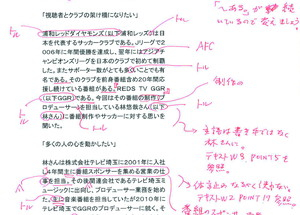 「視聴者とクラブの架け橋になりたい」
浦和レッドダイヤモンズ(以下浦和レッズ)は日
本を代表するサッカークラブである。Jリーグで2
006年に年間優勝を達成し、翌年にはアジアチ
ャンピオンズリーグを日本のクラブで初めて制覇
した。またサポーター数がとても多いことでも有
名である。そのクラブを前身番組含め20年間応
援し続けている番組がある。REDS TV GGR
(以下GGR)である。今回はその番組の制作プ
ロデューサーを担当している林悠哉さん(以下
林さん)に番組制作やサッカーに対する思いを
聞いた。
「多くの人の心を動かしたい」
林さんは株式会社テレビ埼玉に2001年に入社
し4年間主に番組スポンサーを集める営業の仕
事を担当。その後関連会社であるテレビ埼玉ミ
ュージックに出向し、プロデューサー業務を始め
た。主に音楽番組を担当していたが2010年に
テレビ埼玉でGGRのプロデューサーに就く。そ
トル
トル
AFC
トル
制作の
トル
林さんに。
テキストW8 POINT5を
参照。
トル
テキストW2 POINT17
参照。